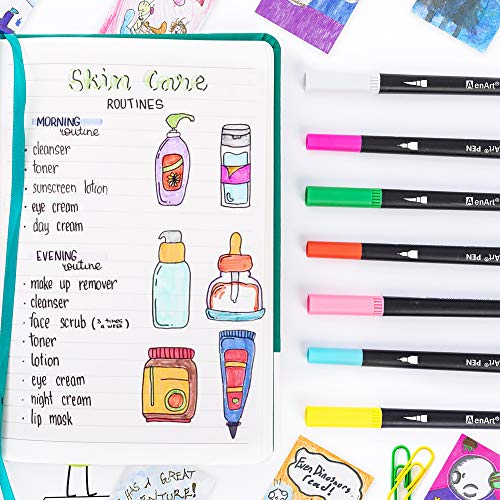 Skin Care
ROUTINES
MORNING
routine
· cleanser
· toner
· sunscreen lotion
· eye cream
· day cream
EVENING
routine
· make up remover
· cleanser
· face scrub (3 times a week)
· toner
· lotion
· eye cream
· night cream
· lip mask
AenArt®
PEN Art®
AenArt®
PEN Art®
AenArt®
PEN Art®
AenArt®
Even Dinosaurs
read!
HAS A GREAT
ADVENTURE!